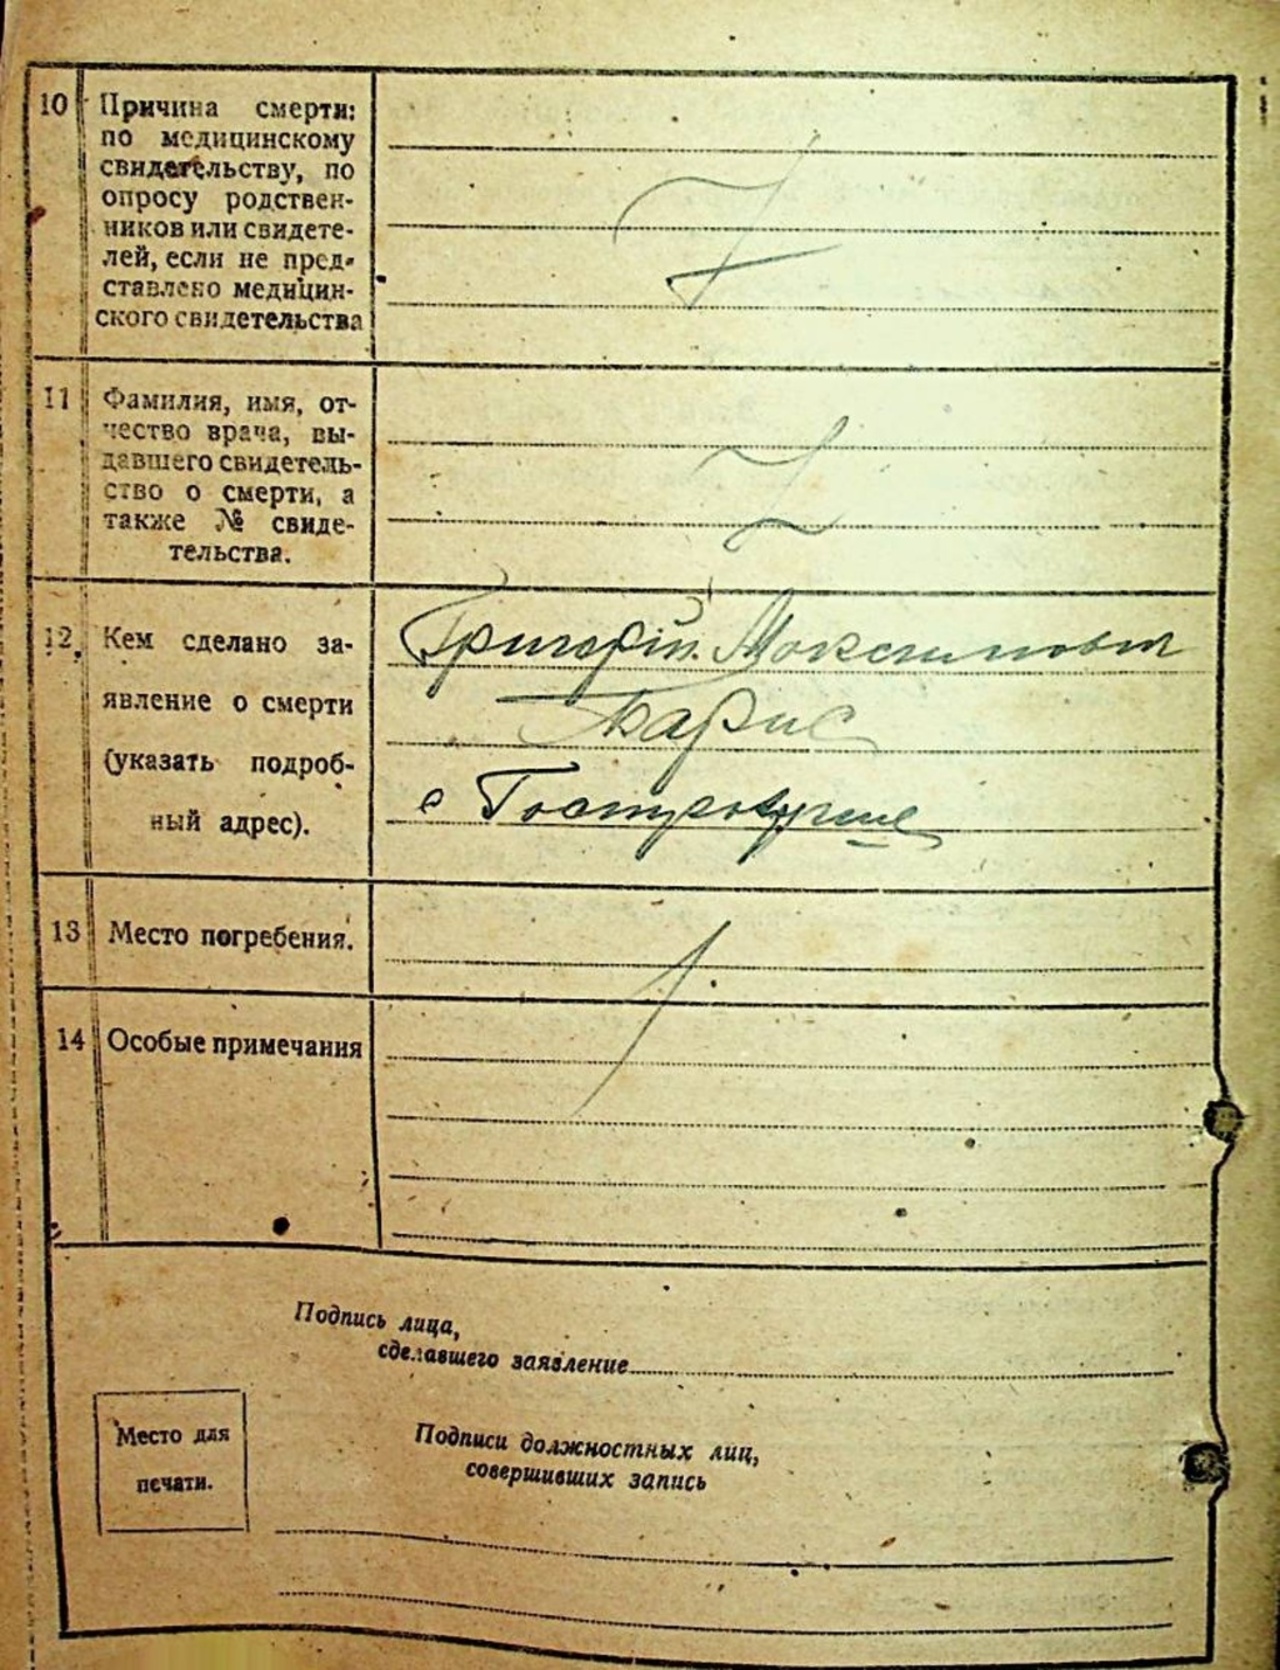 10 Причина смерти:
по медицинскому
свидетельству, по
опросу родствен-
ников или свидете-
лей, если не пред-
ставлено медицин-
ского свидетельства
11 Фамилия, имя, от-
чество врача, вы-
давшего свидетель-
ство о смерти, а
также № свиде-
тельства.
12. Кем сделано за-
явление о смерти
(указать подроб-
ный адрес).
Григорій
с
13 Место погребения.
14 Особые примечания
Подпись лица,
сделавшего заявление
Место для
печати.
Подписи должностных лиц,
совершивших запись